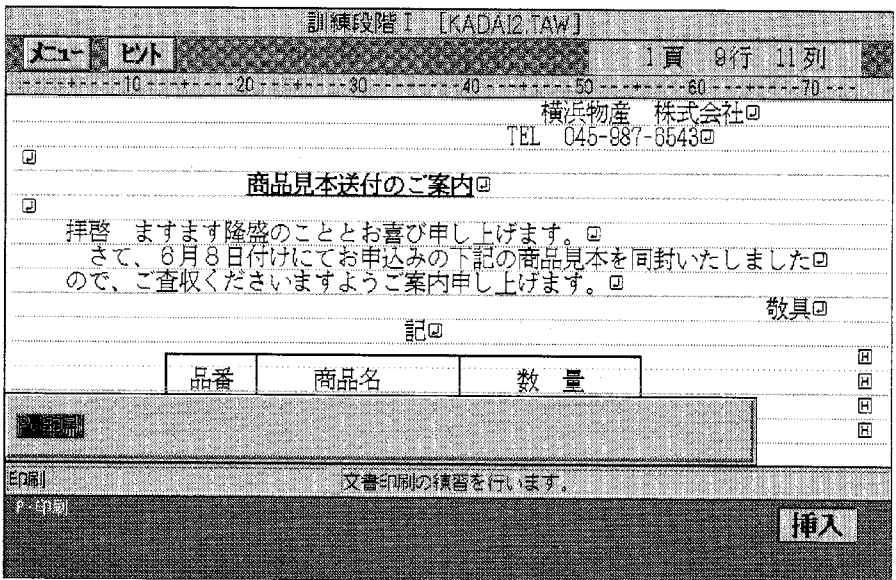 訓練段階Ⅰ [KADAI2.TAW]
メニュー ヒント 1頁 9行 11列
----+----10----+----20----+----30----+----40----+----50----+----60----+----70---
横浜物産 株式会社
TEL 045-987-6543
商品見本送付のご案内
拝啓 ますます隆盛のこととお喜び申し上げます。
さて、6月8日付けにてお申込みの下記の商品見本を同封いたしました
ので、ご査収くださいますようご案内申し上げます。
敬具
記
品番 商品名 数 量
印刷 文書印刷の練習を行います。
P:印刷
挿入